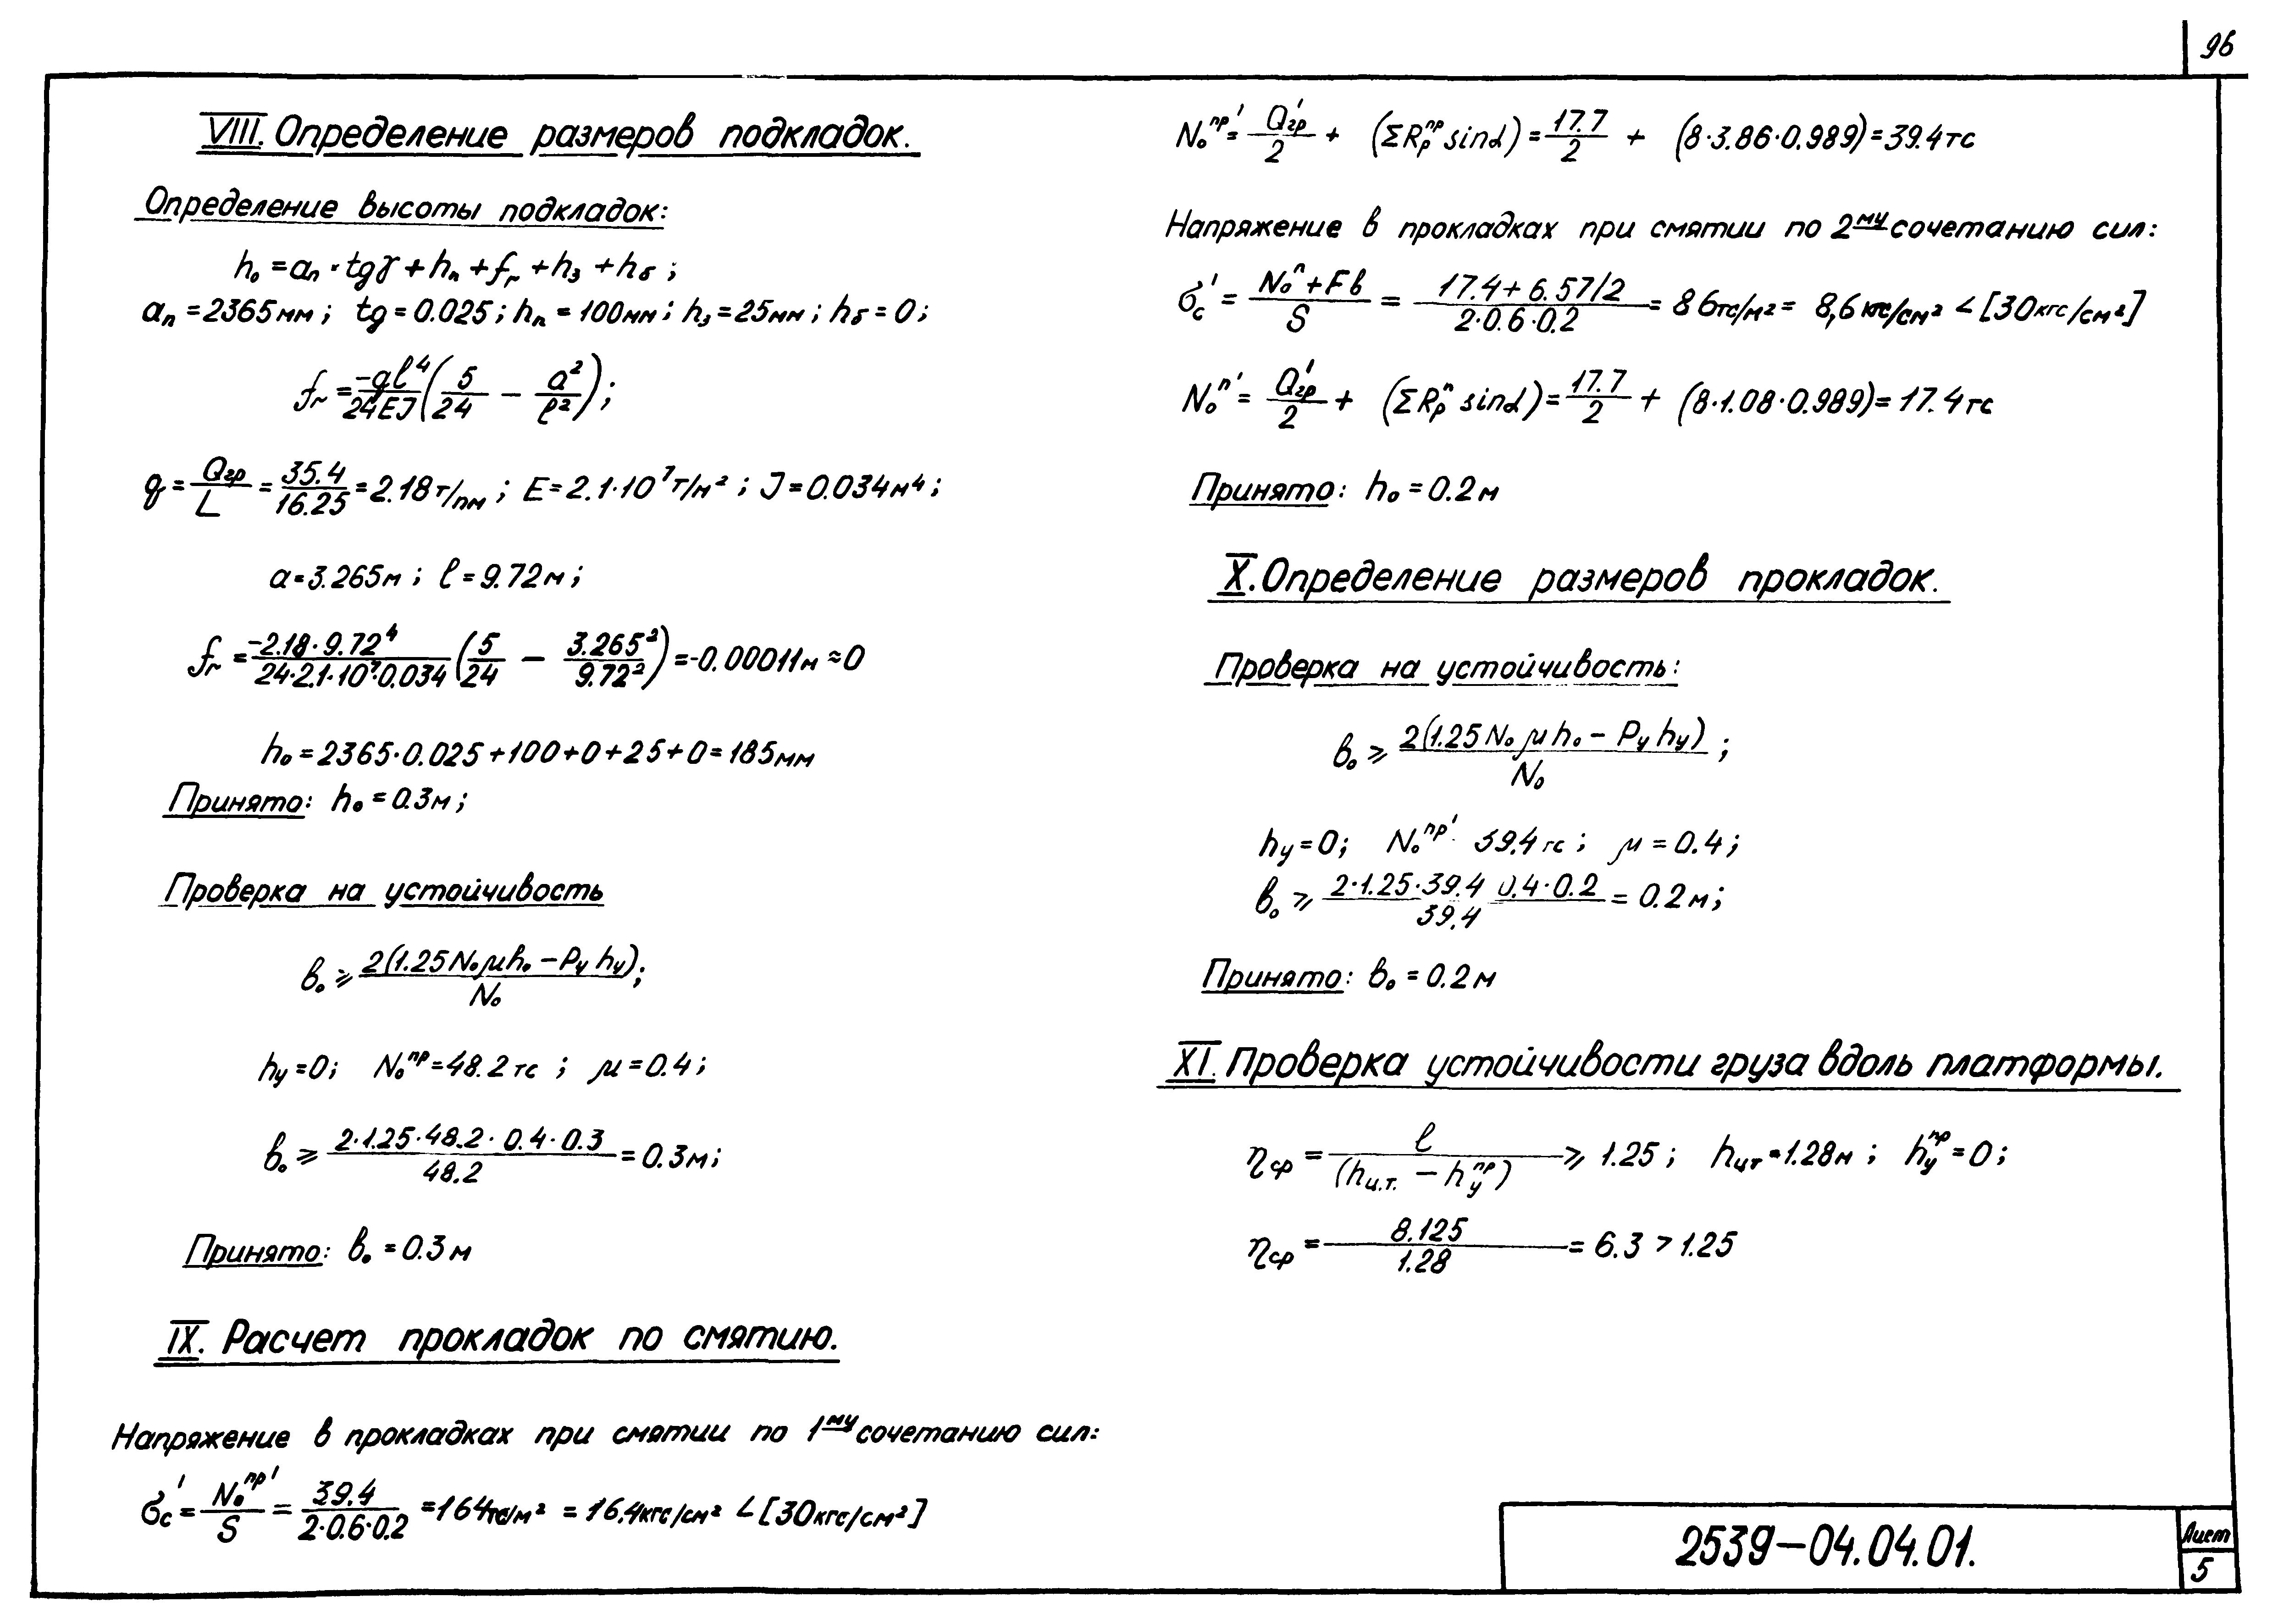 96
VIII. Определение размеров подкладок.
Определение высоты подкладок:
h₀ = aп · tgγ + hп + fг + hз + hб ;
aп = 2365мм ; tg = 0.025 ; hп = 100мм ; hз = 25мм ; hб = 0 ;
fг = -qℓ⁴/24EJ (5/24 - a²/ℓ²) ;
q = Qгр/L = 35.4/16.25 = 2.18 т/пм ; E = 2.1·10⁷ т/м² ; J = 0.034 м⁴ ;
a = 3.265м ; ℓ = 9.72м ;
fг = -2.18·9.72⁴/24·2.1·10⁷·0.034 (5/24 - 3.265²/9.72²) = -0.00011м ≈ 0
h₀ = 2365·0.025 + 100 + 0 + 25 + 0 = 185мм
Принято: h₀ = 0.3м ;
Проверка на устойчивость
в₀ ⩾ 2(1.25 N₀ μ h₀ - Pу hу)/N₀ ;
hу = 0 ; N₀ᵖʳ = 48.2 тс ; μ = 0.4 ;
в₀ ⩾ 2·1.25·48.2·0.4·0.3/48.2 = 0.3м ;
Принято: в₀ = 0.3 м
IX. Расчет прокладок по смятию.
Напряжение в прокладках при смятии по 1му сочетанию сил:
σc' = N₀пр'/S = 39.4/2·0.6·0.2 = 164тс/м² = 16.4кгс/см² < [30кгс/см²]
N₀пр' = Q'гр/2 + (ΣRрпр sinα) = 17.7/2 + (8·3.86·0.989) = 39.4тс
Напряжение в прокладках при смятии по 2му сочетанию сил:
σc' = N₀п + Fв/S = 17.4 + 6.57/2/2·0.6·0.2 = 86тс/м² = 8,6 кгс/см² < [30кгс/см²]
N₀п' = Q'гр/2 + (ΣRрп sinα) = 17.7/2 + (8·1.08·0.989) = 17.4тс
Принято: h₀ = 0.2 м
X. Определение размеров прокладок.
Проверка на устойчивость:
в₀ ⩾ 2(1.25 N₀ μ h₀ - Pу hу)/N₀ ;
hу = 0 ; N₀пр' 39.4 тс ; μ = 0.4 ;
в₀ ⩾ 2·1.25·39.4 0.4·0.2/39.4 = 0.2м ;
Принято: в₀ = 0.2 м
XI. Проверка устойчивости груза вдоль платформы.
ηср = ℓ/(hц.т. - hупр) ⩾ 1.25 ; hцт = 1.28м ; hупр = 0 ;
ηср = 8.125/1.28 = 6.3 > 1.25
2539-04.04.01.
Лист
5